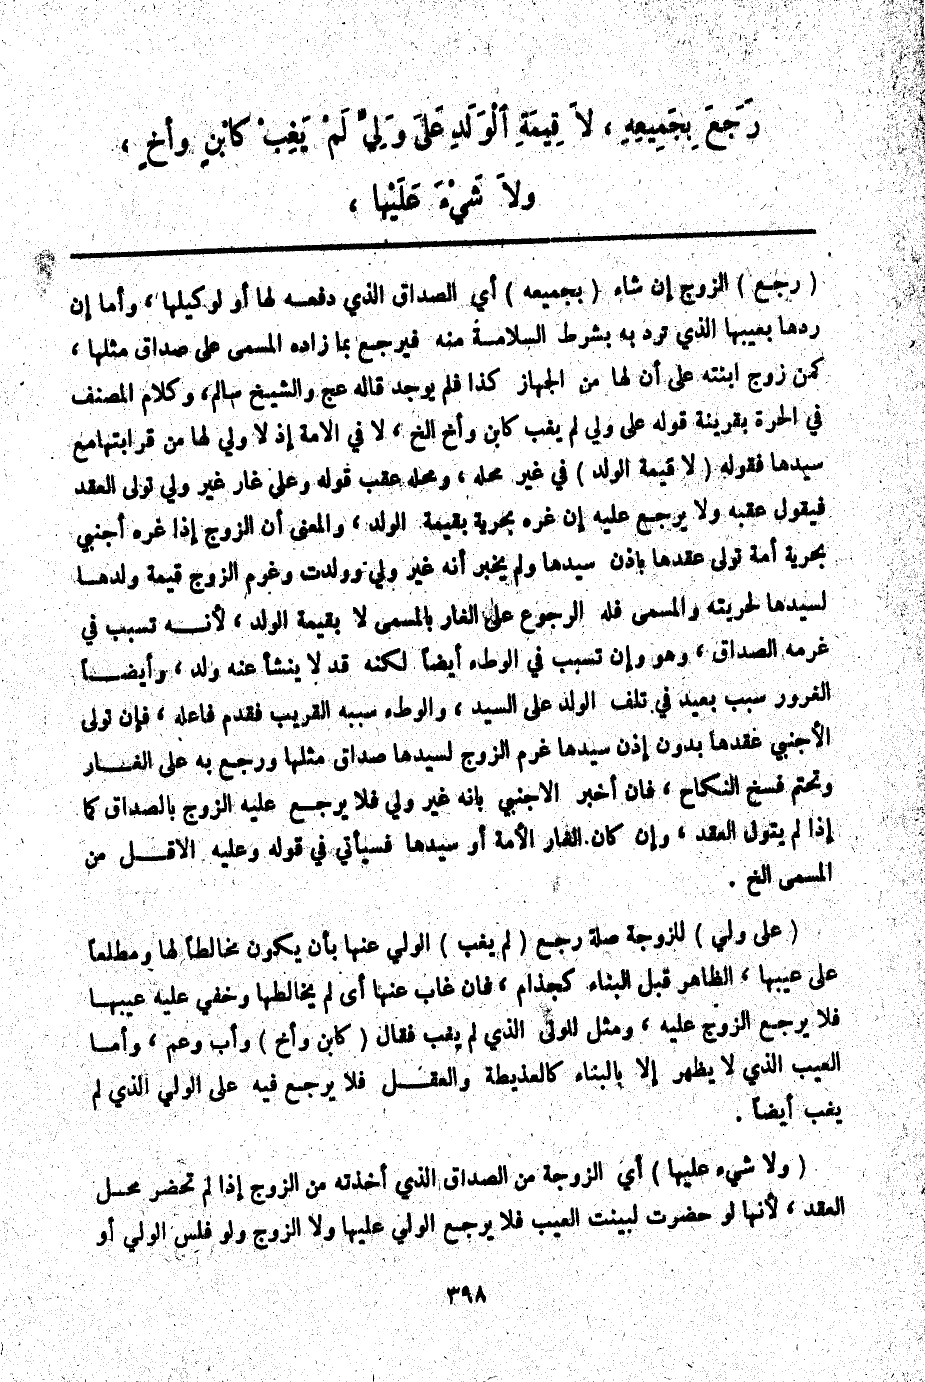 رَجَعَ بِجَمِيعِهِ ، لاَ قِيمَةِ ٱلْوَلَدِ عَلَى وَلِيٍّ لَمْ يَغِبْ كابْنٍ وأَخٍ ،
ولاَ شَيْءَ عَلَيْها ،
( رجع ) الزوج إن شاء ( بجميعه ) أي الصداق الذي دفعه لها أو لوكيلها ، وأما إن
ردها بعيبها الذي ترد به بشرط السلامة منه فيرجع بما زاده المسمى على صداق مثلها ،
كمن زوج ابنته على أن لها من الجهاز كذا فلم يوجد قاله عج والشيخ سالم، وكلام المصنف
في الحرة بقرينة قوله على ولي لم يغب كابن وأخ الخ ، لا في الامة إذ لا ولي لها من قرابتها مع
سيدها فقوله ( لا قيمة الولد ) في غير محله ، ومحله عقب قوله وعلى غار غير ولي تولى العقد
فيقول عقبه ولا يرجع عليه إن غره بحرية بقيمة الولد ، والمعنى أن الزوج إذا غره أجنبي
بحرية أمة تولى عقدها باذن سيدها ولم يخبر أنه غير ولي وولدت وغرم الزوج قيمة ولدها
لسيدها لحريته والمسمى فله الرجوع على الغار بالمسمى لا بقيمة الولد ، لأنه تسبب في
غرمه الصداق ، وهو وإن تسبب في الوطء أيضاً لكنه قد لا ينشأ عنه ولد ، وأيضاً
الغرور سبب بعيد في تلف الولد على السيد ، والوطء سببه القريب فقدم فاعله ، فإن تولى
الأجنبي عقدها بدون إذن سيدها غرم الزوج لسيدها صداق مثلها ورجع به على الغار
وتحتم فسخ النكاح ، فان أخبر الاجنبي بانه غير ولي فلا يرجع عليه الزوج بالصداق كما
إذا لم يتول العقد ، وإن كان الغار الأمة أو سيدها فسيأتي في قوله وعليه الاقل من
المسمى الخ .
( على ولي ) للزوجة صلة رجع ( لم يغب ) الولي عنها بأن يكون مخالطاً لها ومطلعاً
على عيبها ، الظاهر قبل البناء كجذام ، فان غاب عنها أى لم يخالطها وخفي عليه عيبها
فلا يرجع الزوج عليه ، ومثل للولى الذي لم يغب فقال ( كابن وأخ ) وأب وعم ، وأما
العيب الذي لا يظهر إلا بالبناء كالعذيطة والعفل فلا يرجع فيه على الولي الذي لم
يغب أيضاً .
( ولا شيء عليها ) أي الزوجة من الصداق الذي أخذته من الزوج إذا لم تحضر محل
العقد ، لأنها لو حضرت لبينت العيب فلا يرجع الولي عليها ولا الزوج ولو فلس الولي أو
٣٩٨